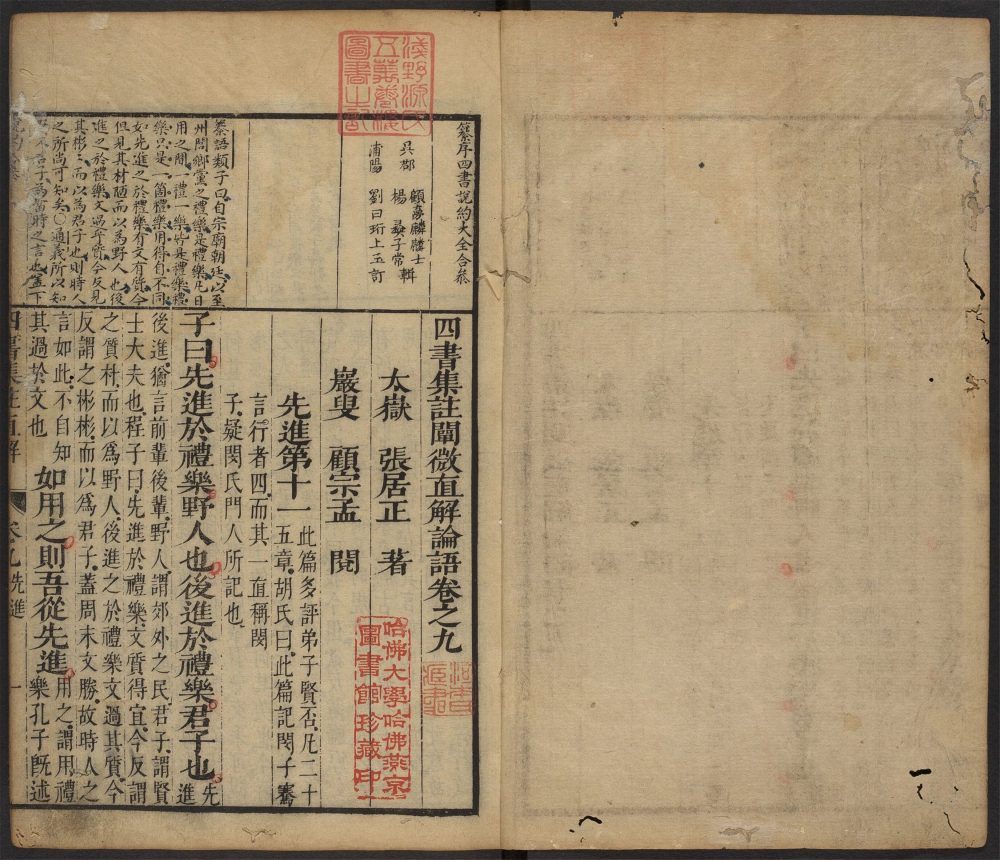 纂序四書說約大全合參
吳郡 顧夢麟麟士
楊彝子常輯
莆陽 劉曰珩上玉訂
纂語類子曰自宗廟朝廷以至
州閭鄉黨之禮樂是禮樂凡日
用之間一禮一樂皆是禮樂禮
樂只是一箇禮樂用得自不同
如先進之於禮樂有文有質今
但見其材陋而以為野人也後
進之於禮樂文過乎質今反見
其彬彬而以為君子也則時人
之所尚可知矣○通義所以知
君子為當時之言也蓋下
四書集註闡微直解論語卷之九
太嶽 張居正 著
巖叟 顧宗孟 閱
先進第十一 此篇多評弟子賢否凡二十
五章胡氏曰此篇記閔子騫
言行者四而其一直稱閔
子疑閔氏門人所記也
子曰先進於禮樂野人也後進於禮樂君子也 先進
後進猶言前輩後輩野人謂郊外之民君子謂賢
士大夫也程子曰先進於禮樂文質得宜今反謂
之質朴而以爲野人後進之於禮樂文過其質今
反謂之彬彬而以爲君子蓋周末文勝故時人之
言如此不自知
其過於文也 如用之則吾從先進 用之謂用禮
樂孔子旣述
四書集註直解 卷九先進 一
淺野源氏
五萬卷樓
圖書之記
哈佛大學哈佛燕京
圖書館珍藏印